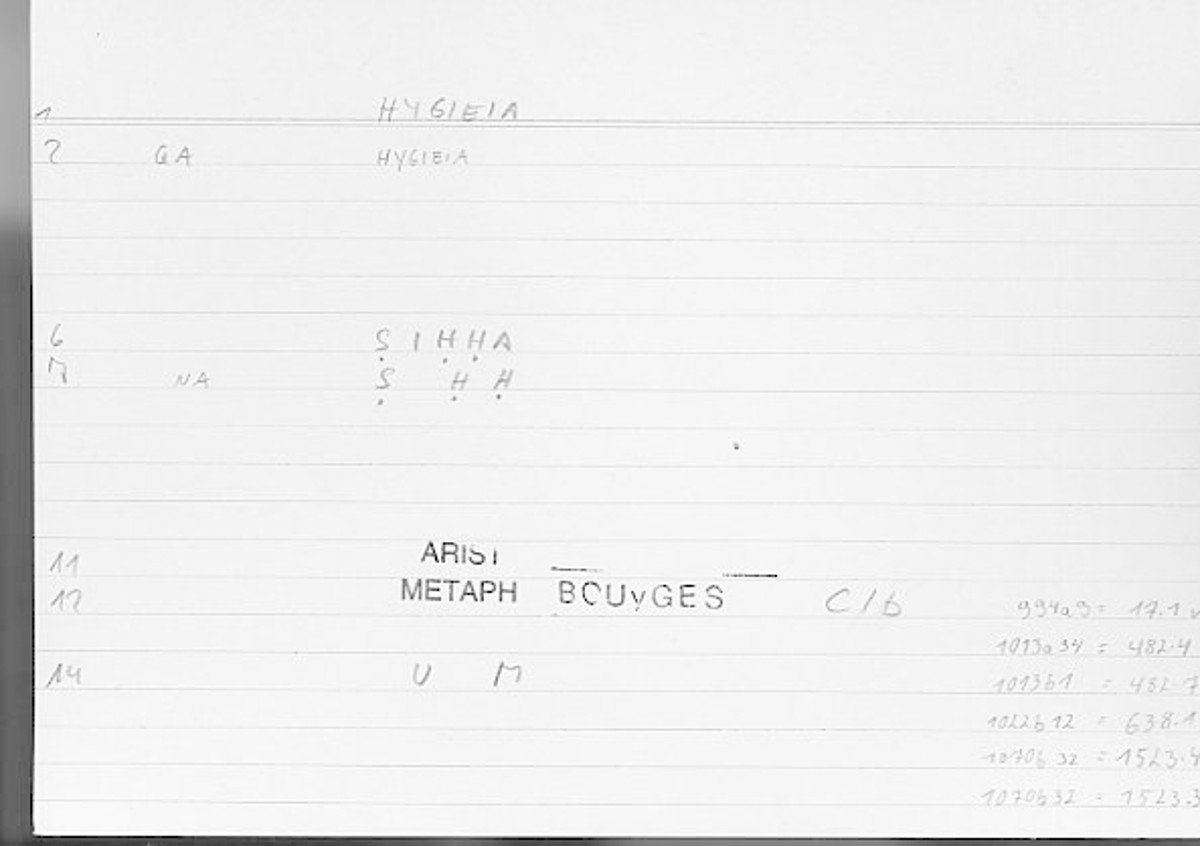 1 HYGIEIA
2 GA HYGIEIA
6 ṢIḤḤA
7 NA Ṣ Ḥ Ḥ
11 ARIST
12 METAPH BOUyGES C/b 994a9 = 17.1
1013a34 = 482.4
14 U M 1013b1 = 482.7
1022b12 = 638.1
1070b32 = 1523.4
1070b32 = 1523.3